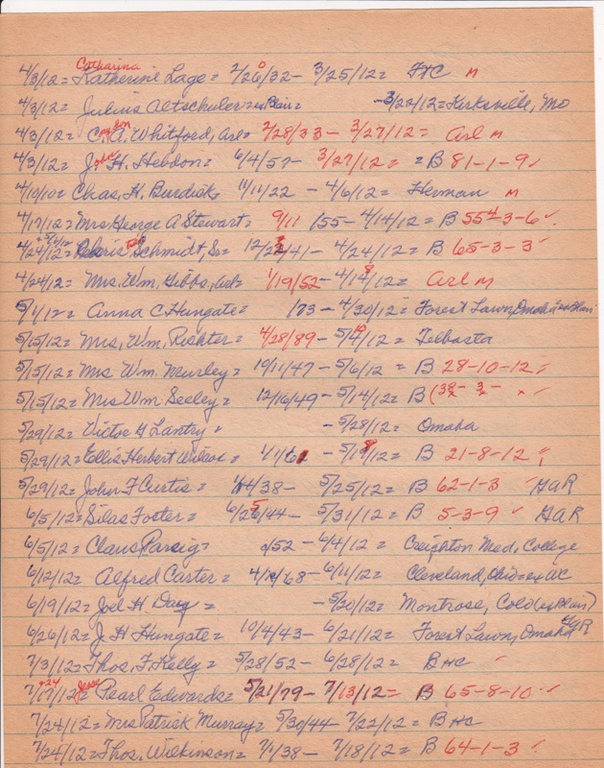 Catharina
4/3/12 = Katherine Lage = 2/26/32 - 3/25/12 = HC M
4/3/12 = Julius Altschuler = ex Blair = - 3/22/12 = Kirksville, Mo
4/3/12 = C. A. Whitford, Arl = 2/28/33 - 3/27/12 = Arl M
4/3/12 = John H. Hebdon = 6/4/57 - 3/27/12 = = B 81-1-9 ✓
4/10/10 = Chas, H, Burdick, 11/11/22 - 4/6/12 = Herman M
4/17/12 = Mrs. George A Stewart = 9/11 /55 - 4/14/12 = B 55-3-6 ✓
4/24/12 = Schmidt, Sr = 12/22/41 - 4/24/12 = B 65-3-3 ✓
4/24/12 = Mrs. Wm, Gibbs, Arl = 1/19/52 - 4/18/12 = Arl M
5/1/12 = Anna C. Hungate = /73 - 4/30/12 = Forest Lawn, Omaha = ex Blair
5/15/12 = Mrs, Wm, Richter = 4/28/89 - 5/10/12 = Telbasta
5/15/12 = Mrs Wm. Murley = 10/11/47 - 5/6/12 = B 28-10-12 ✓
5/15/12 = Mrs Wm Seeley = 12/16/49 - 5/14/12 = B (38- 3-
5/29/12 = Victor H Lantry = - 5/28/12 = Omaha
5/29/12 = Ellis Herbert Wilcox = 4/1/62 - 5/18/12 = B 21-8-12 ✓
5/29/12 = John F Curtis = 4/38 - 5/25/12 = B 62-1-3 ✓ GAR
6/5/12 = Silas Foster = 6/25/44 - 5/31/12 = B 5-3-9 ✓ GAR
6/5/12 = Claus Rarsig = /52 - 6/4/12 = Creighton Med, College
6/12/12 = Alfred Carter = /68 - 6/11/12 = Cleveland, Ohio = ex WC
6/19/12 = Joel H. Day = - 5/30/12 = Montrose, Colo (ex Blair)
6/26/12 = J. H Hungate = 10/4/43 - 6/21/12 = Forest Lawn, Omaha GAR
7/3/12 = Thos, F. Kelly = 5/28/52 - 6/28/12 = B HC ✓
+24 Jesse
7/17/12 = Pearl Edwards = 5/21/79 - 7/13/12 = B 65-8-10 ✓
7/24/12 = Mrs Patrick Murray = 5/30/44 7/22/12 = B HC
7/24/12 = Thos. Wilkinson = 7/1/38 - 7/18/12 = B 64-1-3 ✓